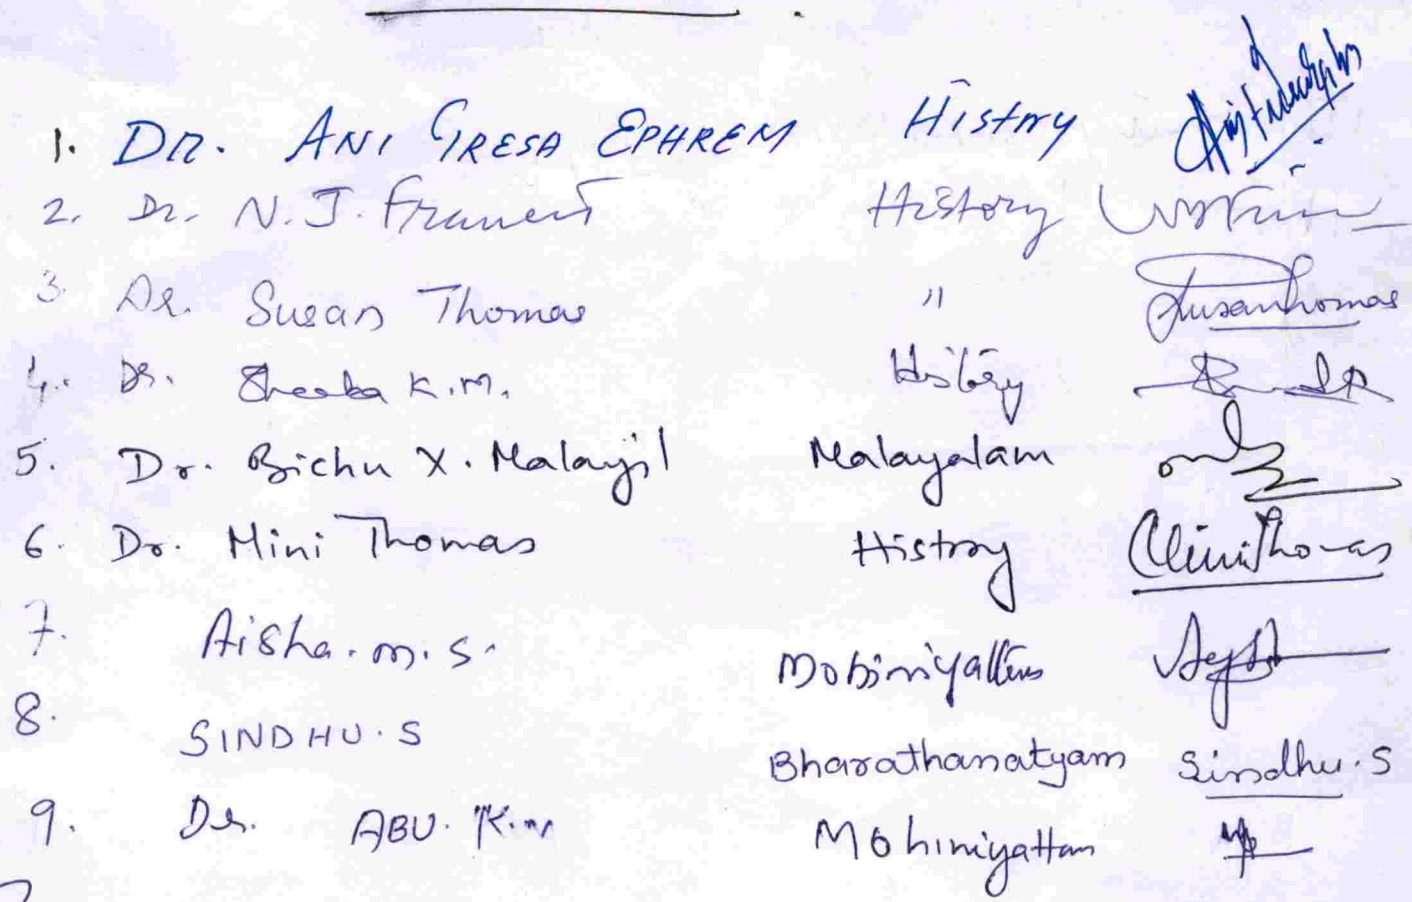 1. DR. ANI TRESA EPHREM History
2. Dr. N. J. Francis History
3. Dr. Susan Thomas " Susan Thomas
4. Dr. Sheeba K.M. History
5. Dr. Bichu X. Malayil Malayalam
6. Dr. Mini Thomas History Mini Thomas
7. Aisha. M. S. Mohiniyattam
8. SINDHU. S Bharathanatyam Sindhu. S
9. Dr. ABU. K. Mohiniyattam